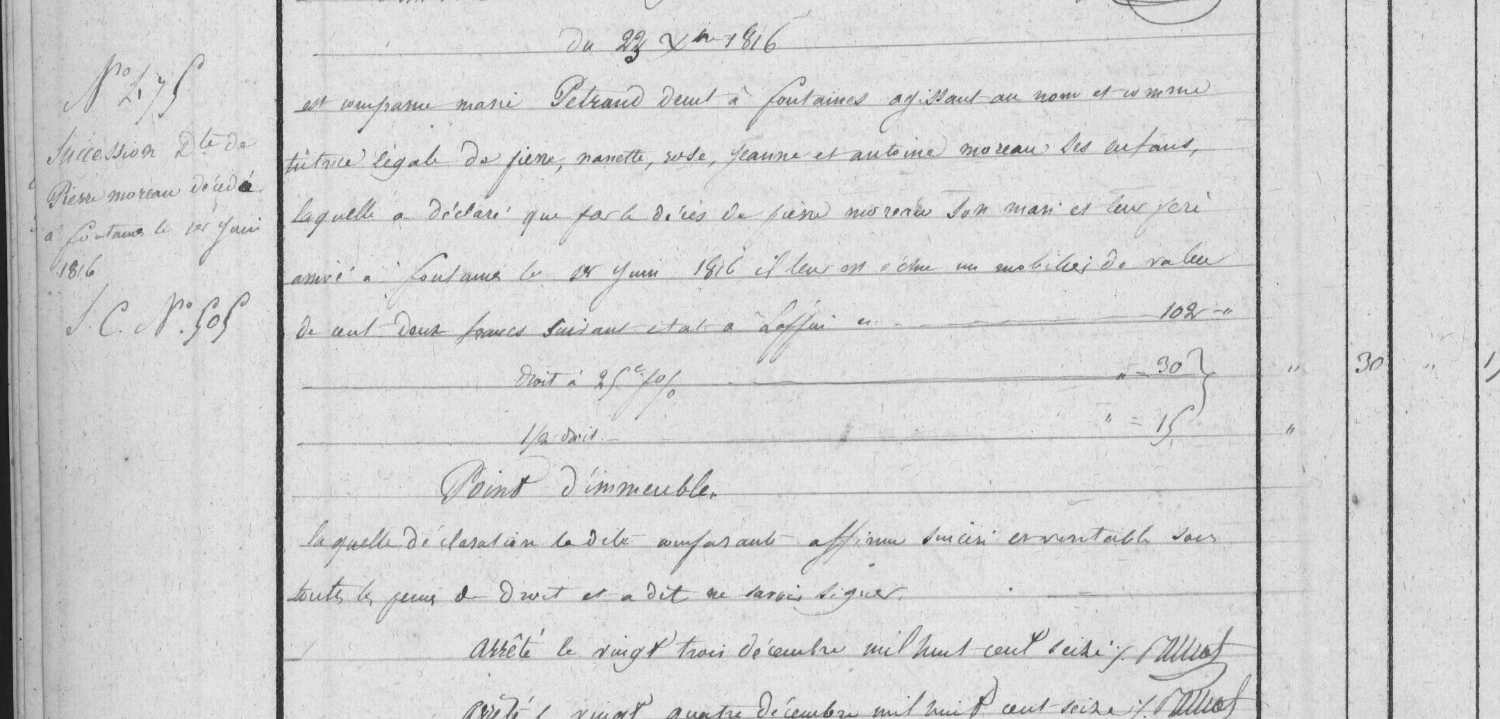 du 23 Xbre 1816
N° 275
Succession Dte de
Pierre moreau décédé
à fontaines le 1er Juin
1816
S. C. N°. 505
est comparue marie Petraud demt à fontaines agissant au nom et comme
tutrice légale de pierre, nanette, rose, jeanne et antoine moreau ses enfans,
laquelle a déclaré que par le décès de pierre moreau son mari et leur père
arrivé à fontaines le 1er Juin 1816 il leur est échu un mobilier de valeur
de cent deux francs suivant état à l'appui ci 102 "
droit à 25 c p % " = 30
1/2 droit " = 15
" 30 " 15
"
Point d'immeuble.
laquelle déclaration la dite comparante affirme sincère et véritable sous
toutes les peines de droit et a dit ne savoir signer.
arrêté le vingt trois décembre mil huit cent seize ./.
arrêté le vingt quatre décembre mil huit cent seize ./.